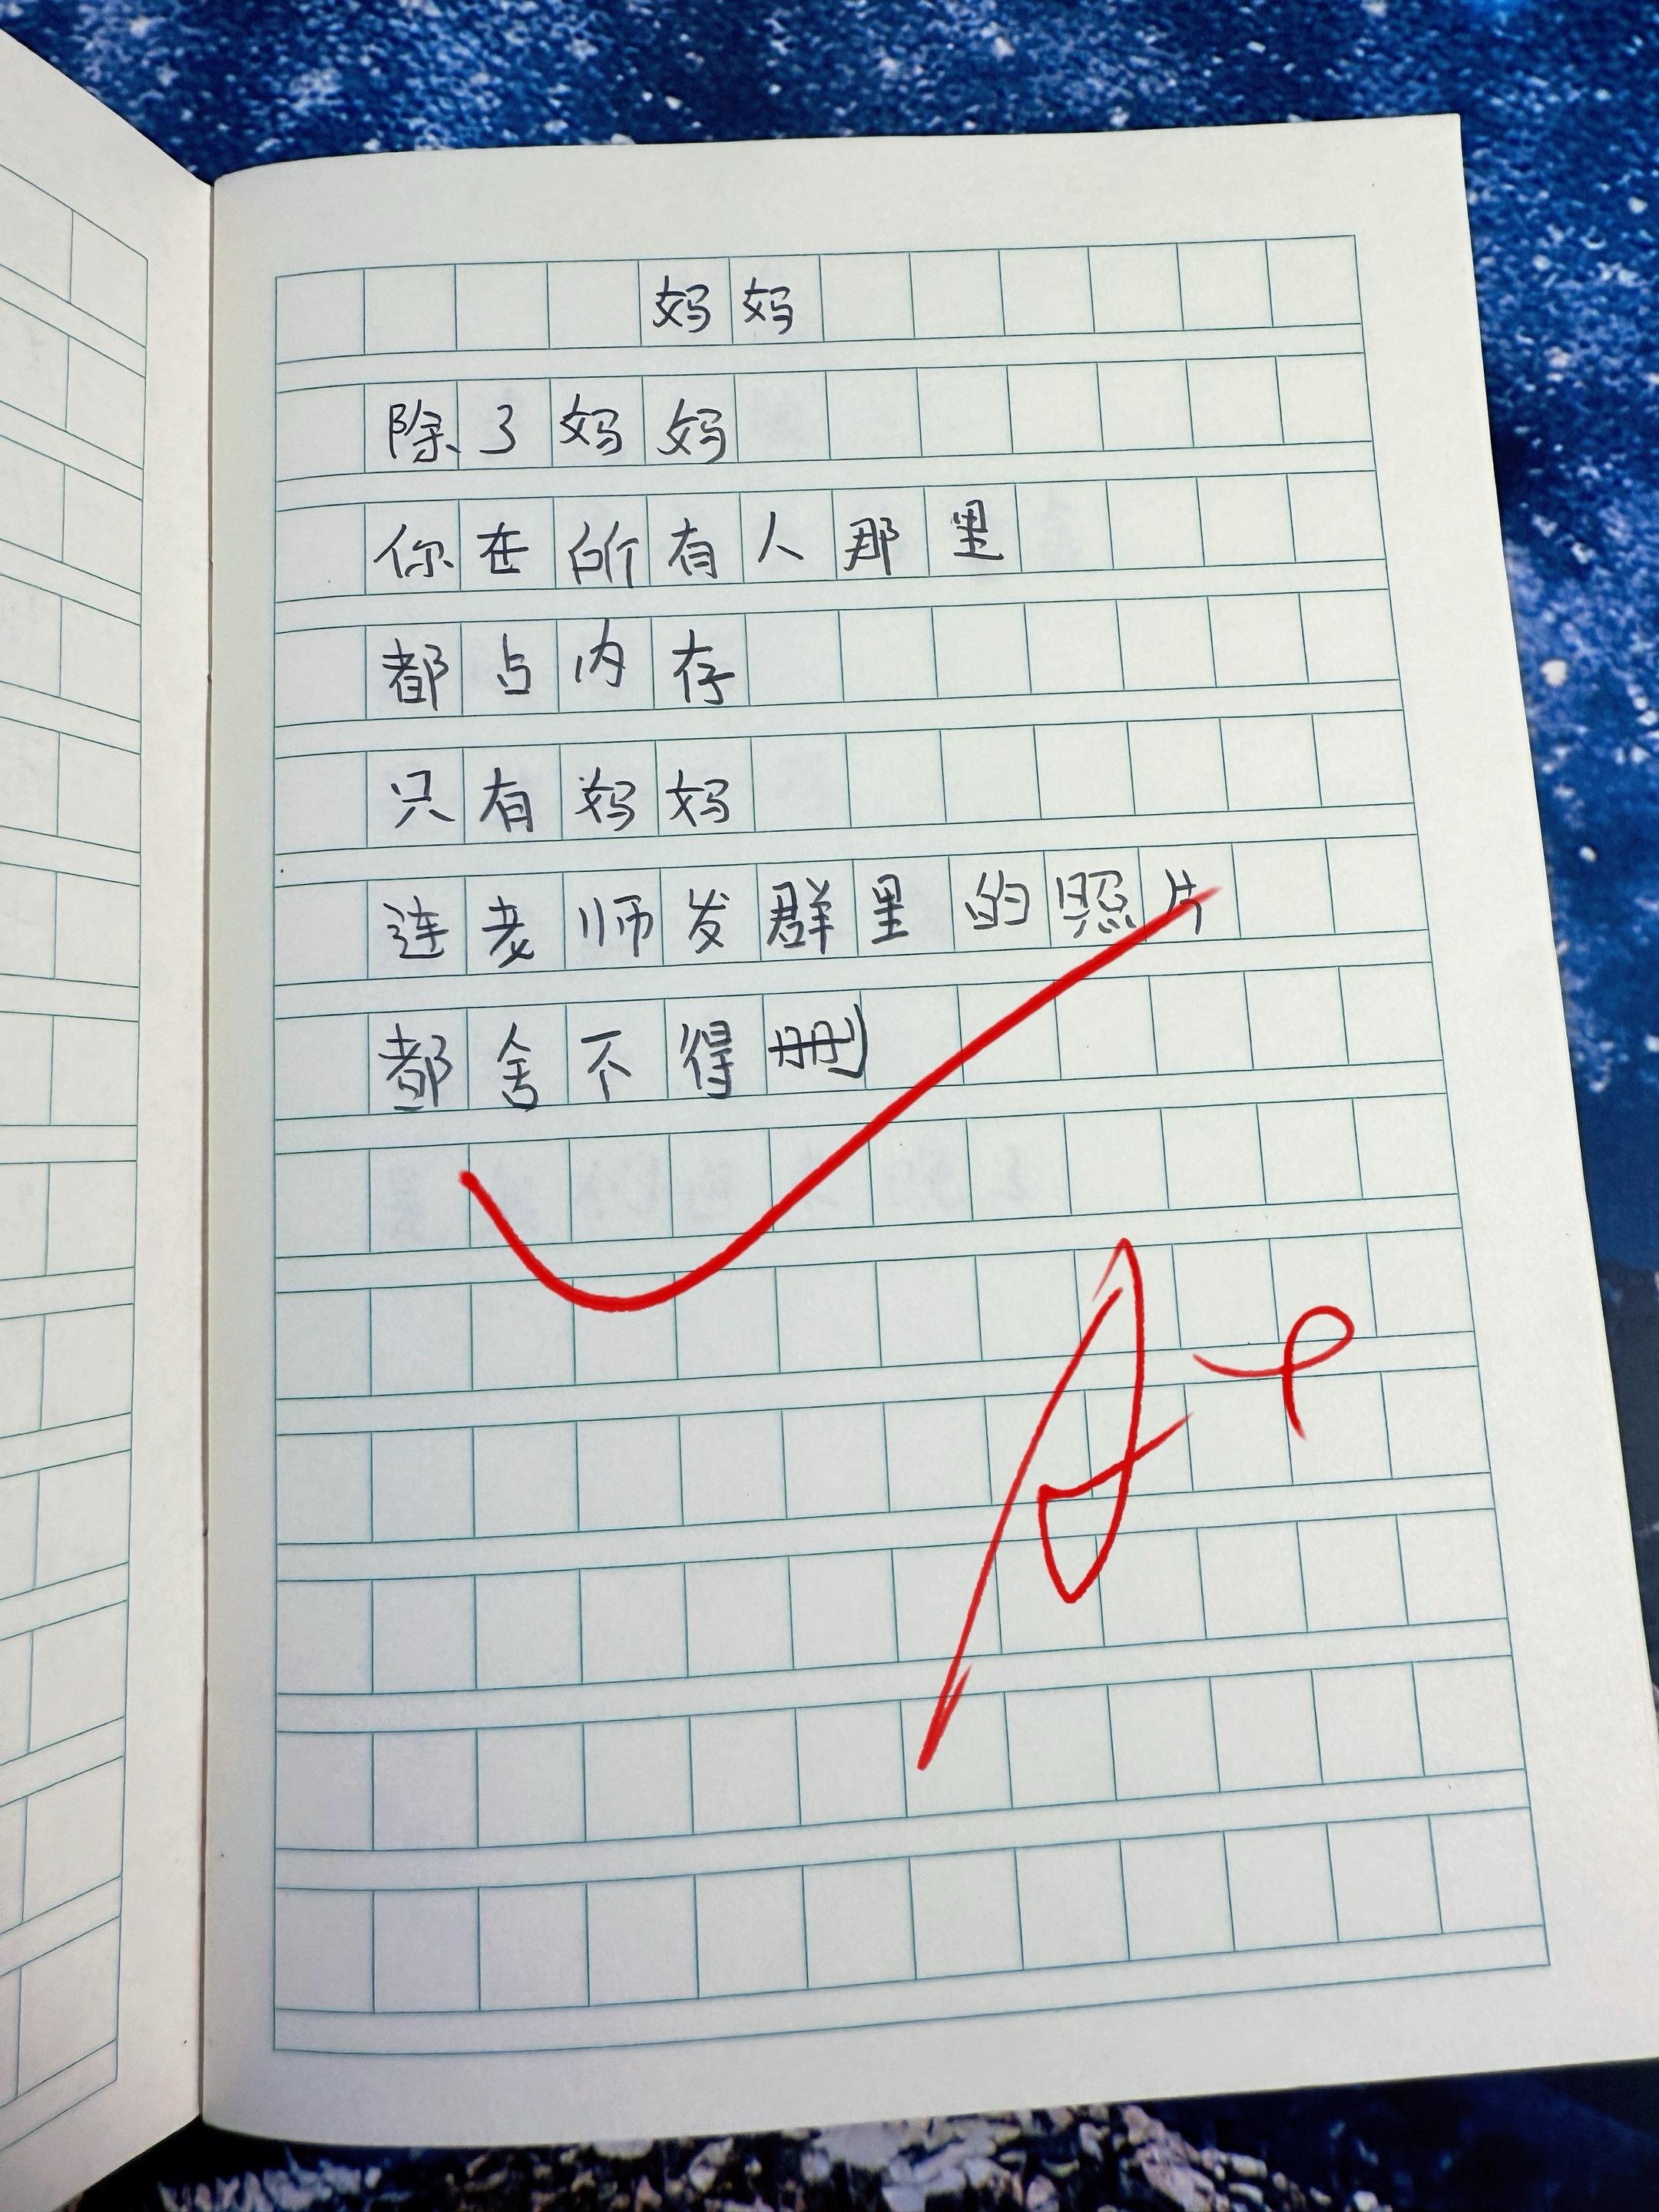 妈妈
除了妈妈
你在所有人那里
都占内存
只有妈妈
连老师发群里的照片
都舍不得删
A+